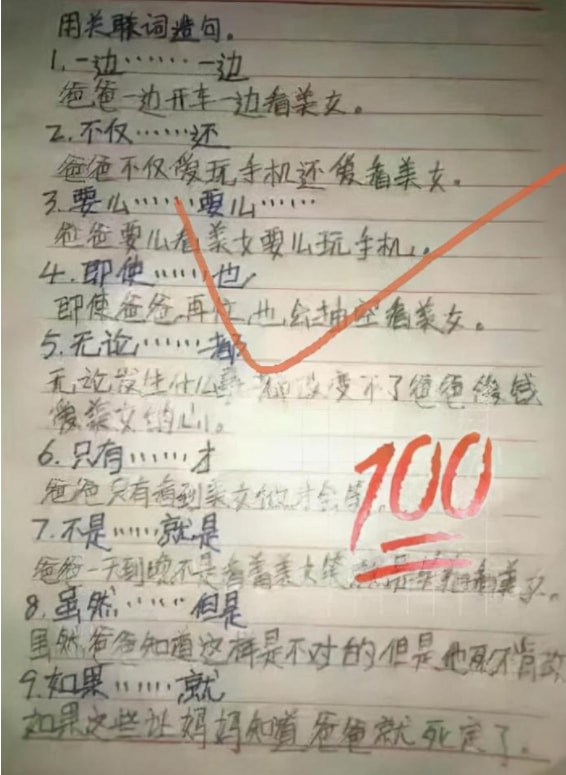 用关联词造句。
1.一边……一边
爸爸一边开车一边看美女。
2.不仅……还
爸爸不仅爱玩手机还爱看美女。
3.要么……要么……
爸爸要么看美女要么玩手机。
4.即使……也
即使爸爸再忙,也会抽空看美女。
5.无论……都
无论发生什么事都改变不了爸爸
爱美女的心。
6.只有……才
爸爸只有看到美女他才会笑。
7.不是……就是
爸爸一天到晚不是看着美女笑,就是看美女。
8.虽然……但是
虽然爸爸知道这样是不对的但是他死不肯改
9.如果……就
如果这些让妈妈知道,爸爸就死定了。
100